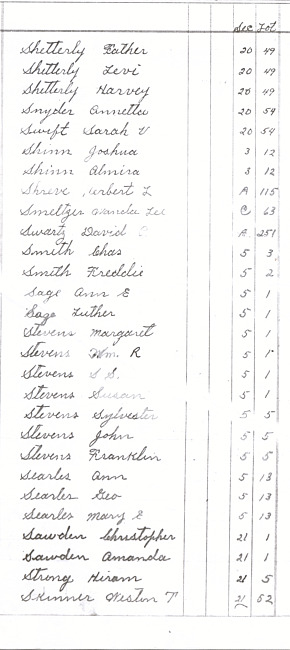 Sec Lot
Shetterly Father 20 49
Shetterly Levi 20 49
Shetterly Harvey 20 49
Snyder Annetta 20 54
Swift Sarah V 20 54
Shinn Joshua 3 12
Shinn Almira 3 12
Shreve Herbert L A 115
Smeltzer Wanda Lee C 63
Swartz David A 251
Smith Chas 5 3
Smith Freddie 5 2
Sage Ann E 5 1
Sage Luther 5 1
Stevens Margaret 5 1
Stevens Wm. R 5 1
Stevens S S. 5 1
Stevens Susan 5 1
Stevens Sylvester 5 5
Stevens John 5 5
Stevens Franklin 5 5
Searles Ann 5 13
Searles Geo 5 13
Searles Mary E 5 13
Sawden Christopher 21 1
Sawden Amanda 21 1
Strong Hiram 21 5
Skinner Weston T 21 52